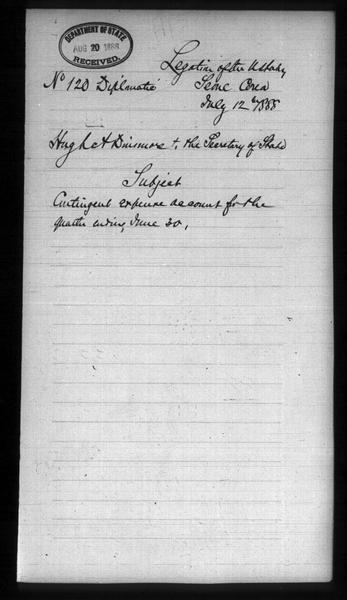 DEPARTMENT OF STATE
AUG 20 1888
RECEIVED.
Legation of the U States
No 120 Diplomatic Seoul Corea
July 12th 1888
Hugh A Dinsmore to the Secretary of State
Subject
Contingent expense account for the
quarter ending June 30,